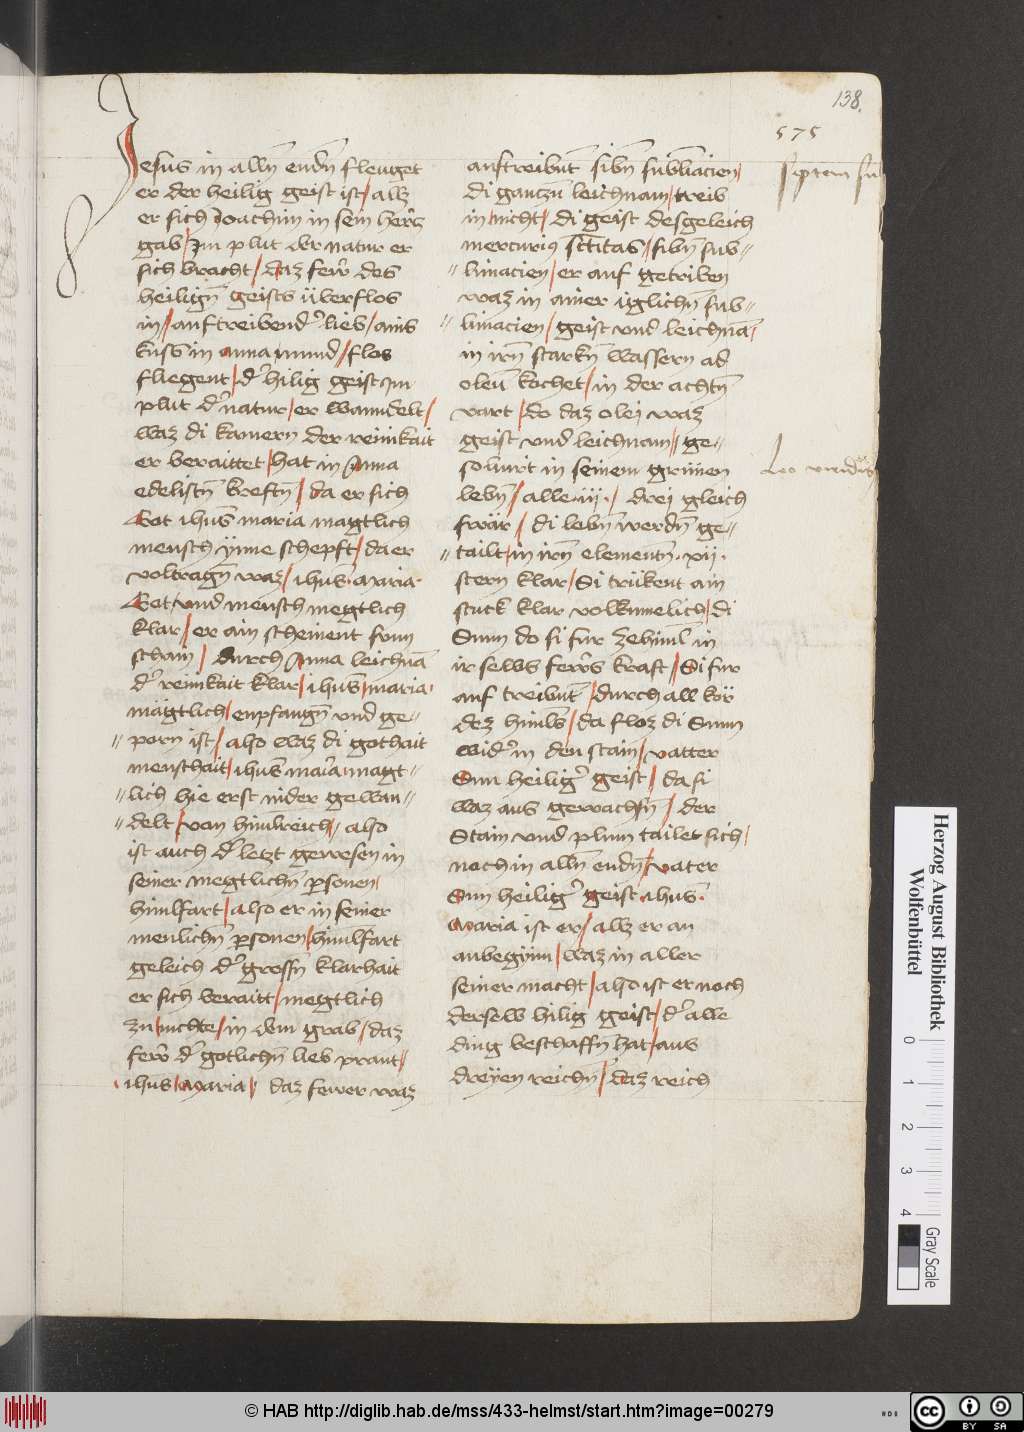 138.
575
Jesus in alln̄ endn̄ fleuget
er der heilig geist ist / alz
er sich Joachim in sein hercz
gab / Im plut der natur er
sich bracht / daz fewr̄ des
heilign̄ geists überflos
in / auftreibend' lieb / ains
kuss in anna mund / flos
fliegent / d' hilig geist im
plut d' natur / er wanndelt /
waz di kamern der reinikait
er beraittet / hat in Anna
edelistn̄ kreftn̄ / da er sich
Got ihus̄ maria magtlich
mensch ynne schepft / da er
voltragn̄ waz / ihus̄. Maria.
Got / vnd mensch megtlich
klar / er ain scheinent frum
schain / durch Anna leichnā
d' reinikait klar / ihus̄ / maria.
mägtlich / enpfangn̄ vnd ge=
= porn ist / also waz di gothait
menschait / ihus̄ maria magt=
= lich hie erst nider gewan=
= delt / von himlreich / also
ist auch d' letzt gewesen in
seiner megtlichn̄ p̲sonen
himlfart / also er in seiner
menlichn̄ p̲sonen / himlfart
geleich d' grossn̄ klarhait
er sich beraitt / megtlich
zu / nichte / in dem grab / daz
fewr̄ d' gotlichn̄ lieb prant /
ihus / Maria / daz fewer waz
auftreibnt̄ sibn̄ sublīacien /
di gantzn̄ leichnam / treib
in / nicht / di geist desgeleich
mercurius sc̄titas / sibn̄ sub=
= limacien / er auf getriben
waz in ainer iglichn̄ sub=
= limacien / geist vnd leichnā /
in irn̄ starkn̄ wassern ad
oleū kochet / in der achtn̄
vart / do daz olej waz
geist vnd leichnam / ge=
soluirt in seinem grünen
lebn̄ / alle .iij. / drej gleich
swär / di lebn̄ werdn̄ ge=
= tailt / in irn̄ elementn̄ .xij.
stern klar / Si trükent ain
stuck klar volkumelich / di
Sunn do si fur zehiml in
ir selbs fewrs kraft / Si fur
auf treibnt̄ / durch all kör
dez himls / da flos di Sunn
wid' in den stain / vatter
Sun heilig' geist / da si
waz aus gewachsn̄ / der
Stain vnd plum tailet sich /
noch in alln̄ endn̄ / vater
Sun heilig' geist ihus̄.
Maria ist er / alz er an
anbegynn / waz in aller
seiner macht / also ist er noch
derselb hilig geist / d' alle
ding beschaffn̄ hat / aus
dreyen reichn̄ / daz reich
septem su
Leo viridis
Herzog August Bibliothek
Wolfenbüttel
0 1 2 3 4
Gray Scale
© HAB http://diglib.hab.de/mss/433-helmst/start.htm?image=00279
cc BY SA